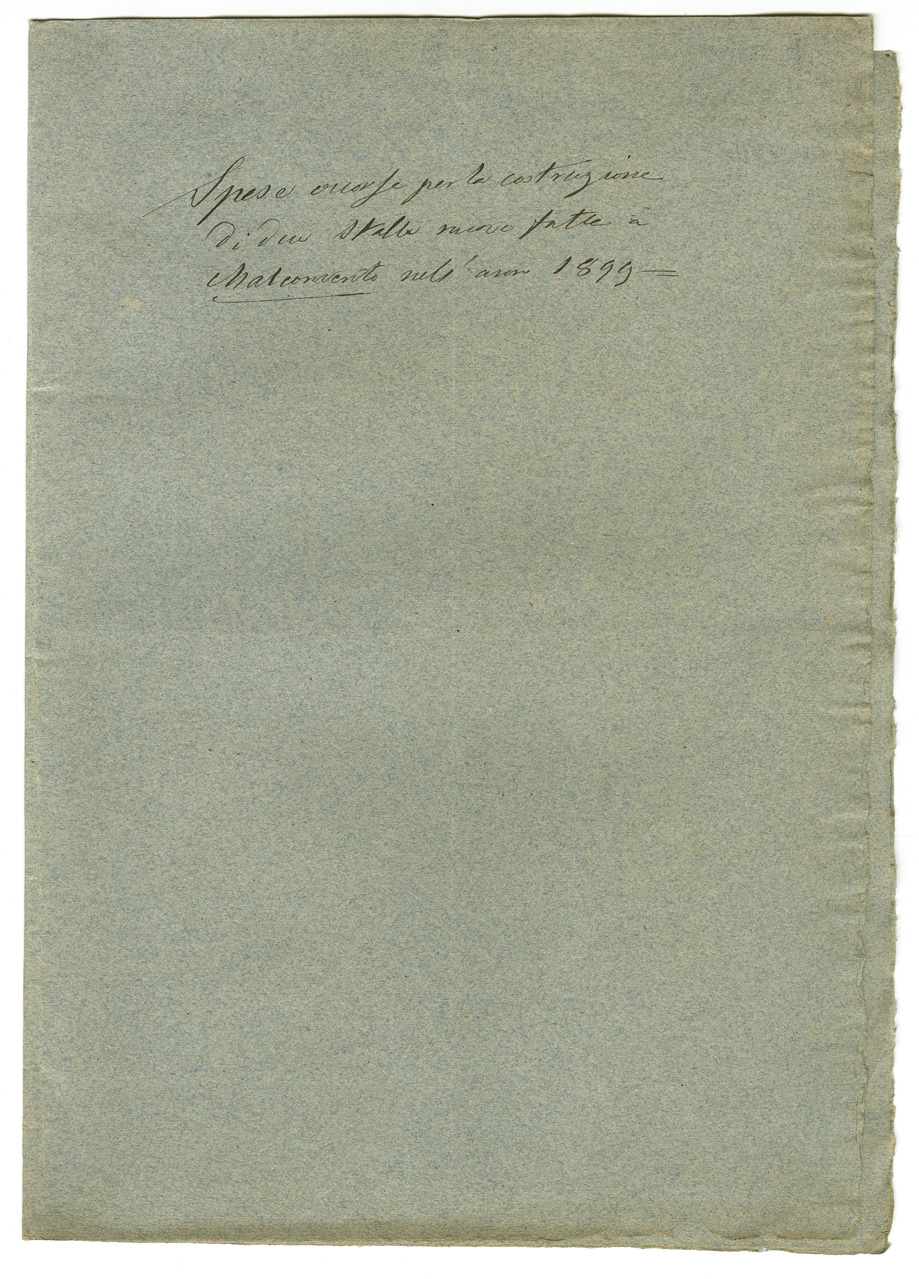 Spese occorse per la costruzione
di due Stalle nuove fatte a
Malconvento nell'anno 1899